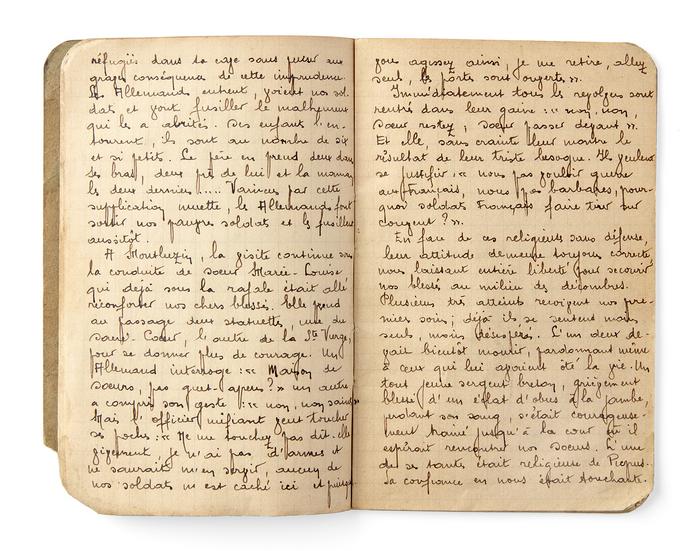 réfugiés dans la cave sans penser aux
graves conséquences de cette imprudence.
Les Allemands entrent, voient nos sol-
dats et vont fusiller le malheureux
qui les a abrités. Des enfants l'en-
tourent, ils sont au nombre de six
et si petits. Le père en prend deux dans
ses bras, deux près de lui et la maman
les deux derniers..... Vaincus par cette
supplication muette, les Allemands font
sortir nos pauvres soldats et les fusillent
aussitôt.
A Montluzin, la visite continue sous
la conduite de soeur Marie-Louise
qui déjà sous la rafale était allé
réconforter nos chers blessés. Elle prend
au passage deux statuettes, une du
Sacré-Coeur, l'autre de la Ste Vierge,
pour se donner plus de courage. Un
Allemand interroge : « Maison de
soeurs, pas guerre ? » un autre
a compris son geste : « non, non,
Mais l'officier méfiant veut toucher
ses poches : « Ne me touchez pas dit-elle
vivement, je n'ai pas d'armes et
ne saurais m'en servir, aucun de
nos soldats n'est caché ici et puisque
vous agissez ainsi, je me retire, allez
seul, les portes sont ouvertes ».
Immédiatement tous les revolvers sont
rentrés dans leur gaine : « non, non,
soeur restez, soeur passer devant ».
Et elle, sans crainte leur montre le
résultat de leur triste besogne. Ils veulent
se justifier : « nous pas vouloir guerre
aux Français, nous pas barbares, pour-
quoi soldats Français faire tirer sur
couvent ? ».
En face de ces religieuses sans défense,
leur attitude demeure toujours correcte,
nous laissant entière liberté pour secourir
nos blessés au milieu des décombres.
Plusieurs très atteints reçoivent nos pre-
miers soins ; déjà ils se sentent moins
seuls, moins désespérés. L'un deux de-
vait bientôt mourir, pardonnant même
à ceux qui lui avaient ôté la vie. Un
tout jeune sergent breton, grièvement
blessé d'un éclat d'obus à la jambe,
perdant son sang, s'était courageuse-
ment traîné jusqu'à la cour où il
espérait rencontrer nos soeurs. L'une
de ses tantes était religieuse de Picpus.
Sa confiance en nous était touchante.